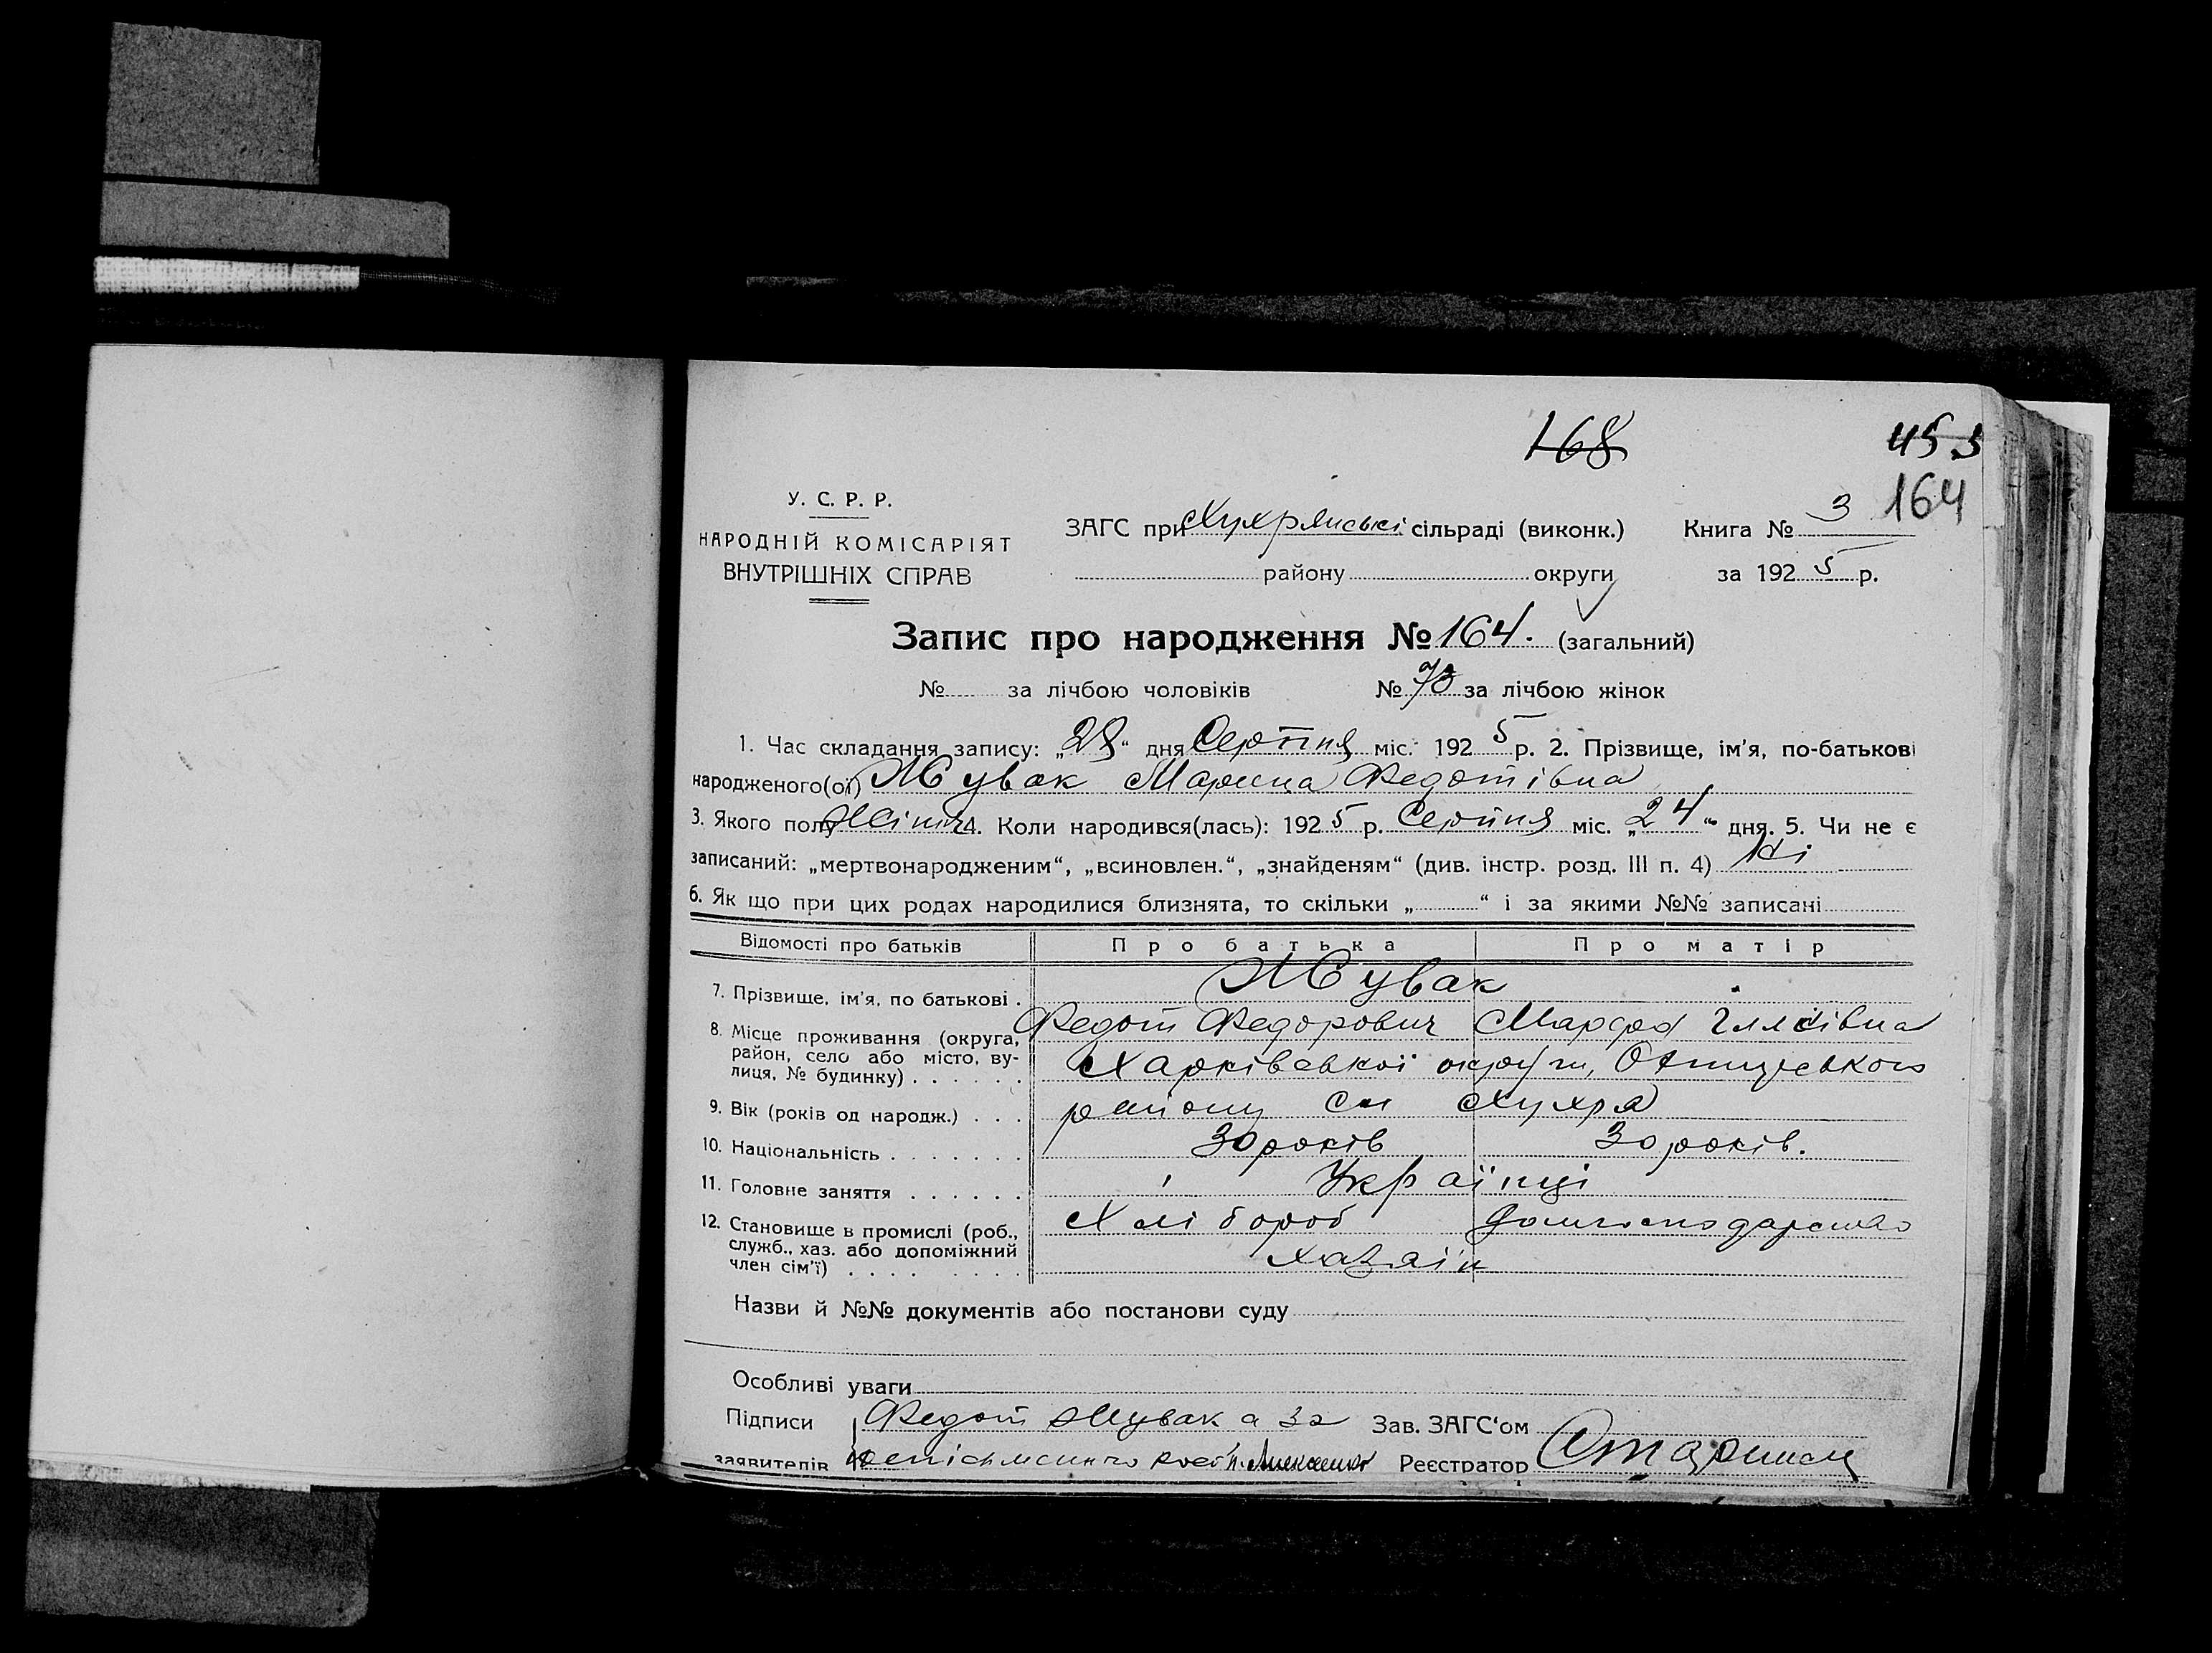 168
45
164
У. С. Р. Р.
НАРОДНІЙ КОМІСАРІЯТ
ВНУТРІШНІХ СПРАВ
ЗАГС при Хухрянські сільраді (виконк.) Книга № 3
району округи за 1925 р.
Запис про народження № 164. (загальний)
№ за лічбою чоловіків № за лічбою жінок
1. Час складання запису: „28“ дня Серпня міс. 1925 р. 2. Прізвище, ім'я, по-батькові
народженого(ої) Жувак Марина Федотівна
3. Якого полу Жіноч 4. Коли народився(лась): 1925 р. Серпня міс. „24“ дня. 5. Чи не є
записаний: „мертвонародженим“, „всиновлен.“, „знайденям“ (див. інстр. розд. III п. 4) Ні
6. Як що при цих родах народилися близнята, то скільки „ “ і за якими №№ записані
Відомості про батьків Про батька Про матір
7. Прізвище, ім'я, по батькові . Жувак
Федот Федорович Марфа Іллівна
8. Місце проживання (округа,
район, село або місто, ву-
лиця, № будинку) . . . . . .
Харківської округи, Охтирського
району с. Хухра
9. Вік (років од народж.) . . .
30 років 30 років.
10. Національність . . . . . . .
Українці
11. Головне заняття . . . . . .
Хлібороб домгосподарство
12. Становище в промислі (роб.,
служб., хаз. або допоміжний
член сім'ї) . . . . . . . .
хазяїн
Назви й №№ документів або постанови суду
Особливі уваги
Підписи Федот Жувак а за Зав. ЗАГС'ом
заявителів Реєстратор